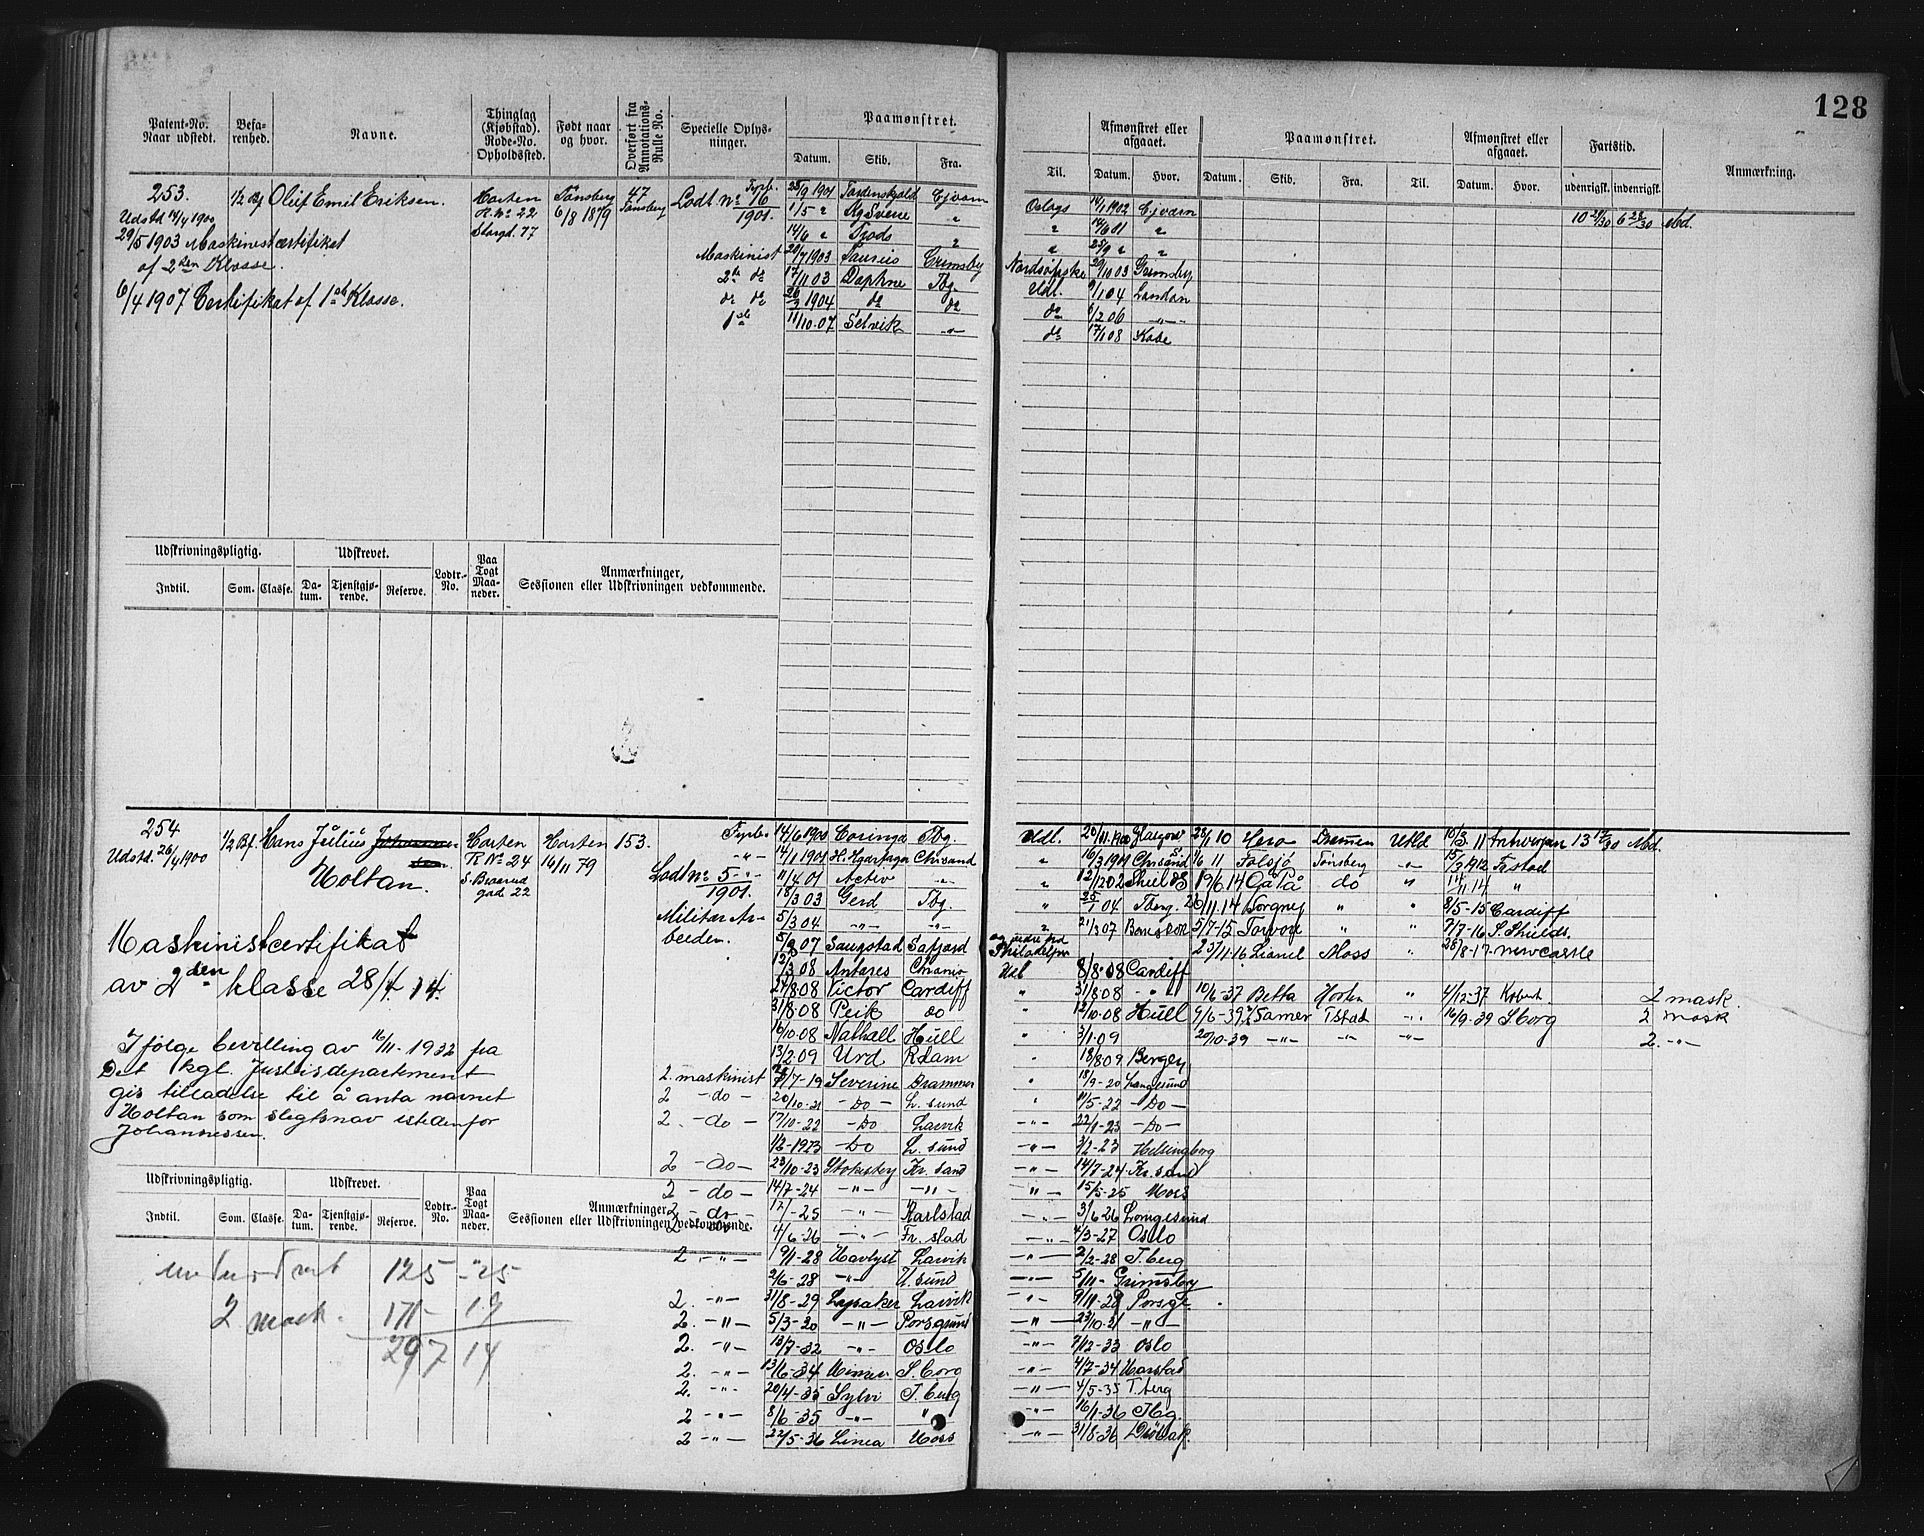 128
Patent-No. Naar udstedt. Befarenhed. Navne. Thinglag (Kjøbstad). Rode-No. Opholdssted. Født naar og hvor. Overført fra Annotations-Rulle No. Specielle Oplysninger. Paamønstret. Datum. Skib. Fra.
Til. Afmønstret eller afgaaet. Datum. Hvor. Paamønstret. Datum. Skib. Fra. Til. Afmønstret eller afgaaet. Datum. Hvor. Fartstid. udenrigsk. indenrigsk. Anmærkning.
253. 1/2 Bf Oluf Emil Eriksen. Horten Tønsberg 47 Fyrb.
Udstd 11/4 1900 R. No 22 6/8 1879 Tønsberg Lodt. No 16
Storgd. 77 1901.
29/5 1903 Maskinistcertifikat
af 2den Klasse.
6/4 1907 Certifikat af 1ste Klasse.
25/9 1901 Tordenskjold Oslags 14/1 1902
1/5 " "
14/6 " "
Maskinist 20/7 1903 Grimsby Nordsøfiske 29/10 03 Grimsby
2de do 17/11 03 Daphne Tbg. Udl. 9/1 04 London
do do 26/3 1904 do do do 6/2 06 -"-
1ste 11/10-07 Selvik -"- do 17/1 08 Kobe
10 29/30 6 28/30 Md.
Udskrivningspligtig. Udskrevet. Lodtr.-No. Paa Togt Maaneder. Anmærkninger, Sessionen eller Udskrivningen vedkommende.
Indtil. Som. Classe. Datum. Tjenstgjørende. Reserve.
254 1/2 Bf. Hans Julius Johannessen Horten Horten 153. Fyrb.
Udstd. 26/4 1900 R No 24 16/11 79 -"-
Holtan. S. Braarud gad. 22 Lodt No 5
1901.
Militær Arbeiden.
Maskinistcertifikat
av 2den klasse 28/4. 14.
Ifølge bevilling av 16/11-1932 fra
Det kgl. Justisdepartement
gis tilladelse til å anta navnet
Holtan som slegtsnav istedenfor
Johannessen.
14/6 1900 Coringa Tbg. Udl. 20/11.1900 Glasgow 28/1 10 Hero Drammen Utld 10/3. 11 Antwerpen 13 12/30 Md.
14/1 1901 Chrsand " 16/3 1901 Chrsand 1/6 11 Falsjø Tønsberg -"- 15/3 1912 Frstad
11/4 01 Activ -"- " 12/12 02 Shields 19/6. 14 Gå På do " 14/11 14 "
18/3 03 Gerd Tbg. " 25/1 04 Tberg. Norgnes " " 8/5-15 Cardiff
5/3 04 -"- -"- " 21/3 07 5/7-15 Torvon " " 7/7-16 S. Shields.
5/2 07 Saugstad og videre fra Philadelphia 23/11-16 Lianel Moss " 28/8-17 Newcastle
12/3 08 Antares Chrania Utl 8/8-08 Cardiff
27/8 08 Victor Cardiff " 31/8 08 -"- 10/6-37 Betta Horten " 4/12-37 2 mask.
31/8-08 Peik do " 12/10-08 Hull 9/6-39 Samer Tstad -"- 16/9-39 Sborg 2 mask
16/10-08 Nathall Hull " 3/1-09 20/10-39 -"- -"- -"- 2. -"-
13/2-09 Urd Rdam " 18/8 09 Bergen
2. maskinist 7-19 Severine Drammen " 18/9-20 Langesund
2 -do- 20/10-21 -Do- L. sund " 11/5-22 -Do-
2. -do- 17/10-22 -Do Larvik -"- 22/1-23 -Do-
1/2-1923 -Do L. sund -"- 3/2-23 Helsingborg
2 -do- 23/10-23 Stokesby Kr. sand -"- 14/7-24 Kr. sand
2 -do- 14/7-24 -"- -"- -"- 15/5-25 Moss
2 -do- -25 -"- Karlstad -"- 3/6 26 Langesund
2 1/6-26 -"- Fr. stad -"- 4/3-27 Oslo
2 -"- 9/1-28 Havlyst Larvik -"- 2/2-28 T. berg
2/6-28 -"- L. sund -"- 5/11- Grimsby
2. -"- 31/8-29 Lysaker Larvik -"- 9/11-29 Porsgr.
2. -"- 5/3-30 -"- Porsgrund -"- 23/10-31 -"-
2. -"- 13/7-32 -"- Oslo -"- 7/12-33 Oslo
2. -"- 13/6-34 Mimer S. borg -"- 4/7-34 Harstad
2. -"- 20/4-35 Sylvi T. berg -"- 4/5-35 T. berg
2 -"- 8/6-35 -"- " -"- 16/1-36 Tbg.
2 -"- 22/5-36 Linea Moss -"- 31/8-36 Drøbak.
Udskrivningspligtig. Udskrevet. Lodtr.-No. Paa Togt Maaneder. Anmærkninger, Sessionen eller Udskrivningen vedkommende.
Indtil. Som. Classe. Datum. Tjenstgjørende. Reserve.
125 - 25
2 mask. 171 - 19
297 14